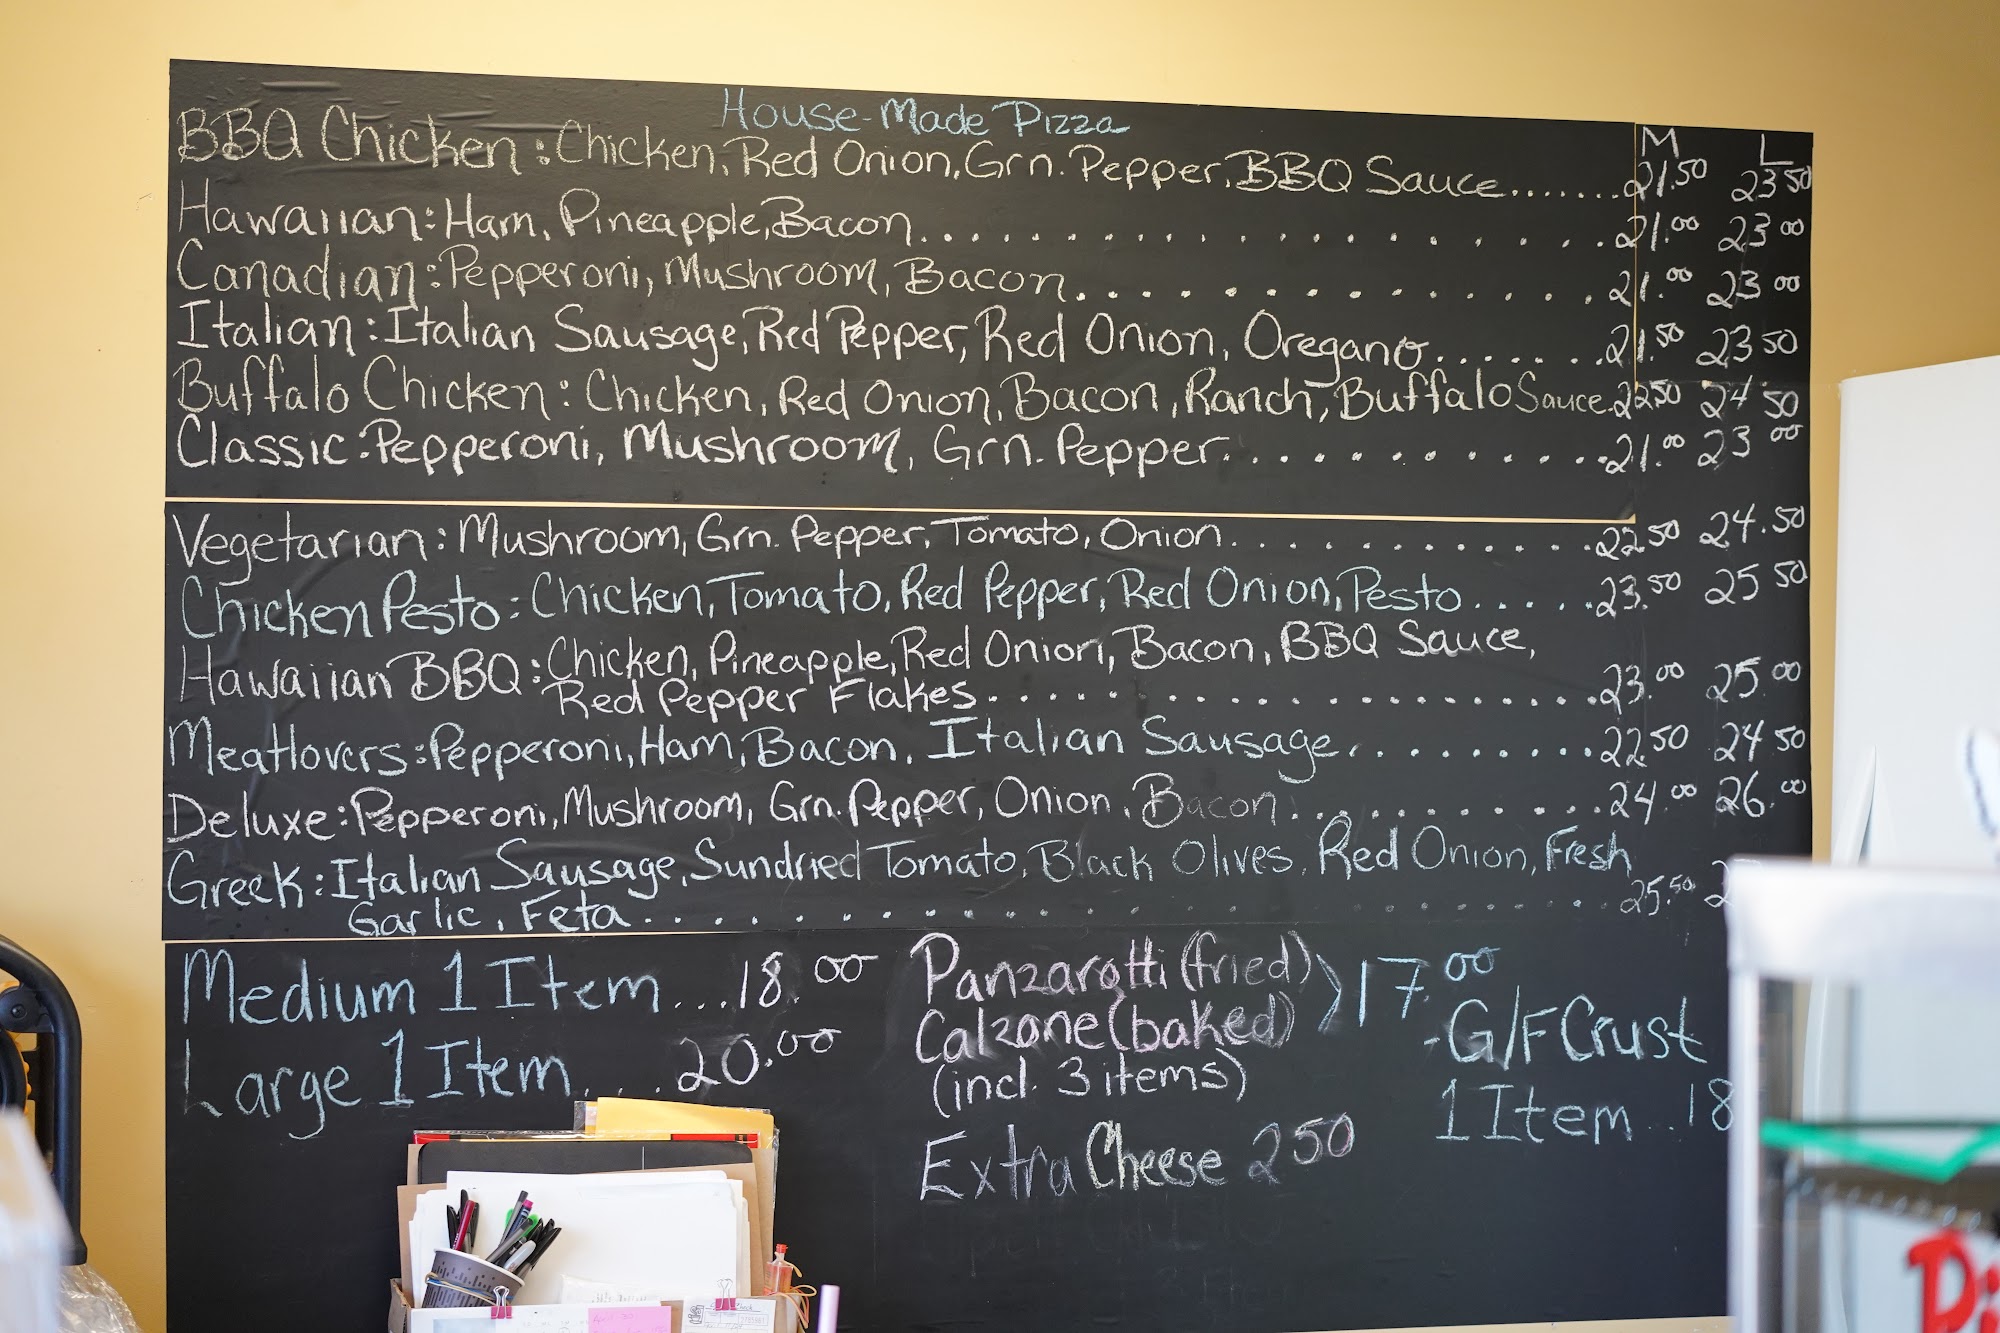 House-Made Pizza
M L
BBQ Chicken: Chicken, Red Onion, Grn. Pepper, BBQ Sauce.......21.50 23.50
Hawaiian: Ham, Pineapple, Bacon..........................21.00 23.00
Canadian: Pepperoni, Mushroom, Bacon..................21.00 23.00
Italian: Italian Sausage, Red Pepper, Red Onion, Oregano.......21.50 23.50
Buffalo Chicken: Chicken, Red Onion, Bacon, Ranch, Buffalo Sauce.22.50 24.50
Classic: Pepperoni, Mushroom, Grn. Pepper..............21.00 23.00
Vegetarian: Mushroom, Grn. Pepper, Tomato, Onion..............22.50 24.50
Chicken Pesto: Chicken, Tomato, Red Pepper, Red Onion, Pesto......23.50 25.50
Hawaiian BBQ: Chicken, Pineapple, Red Onion, Bacon, BBQ Sauce,
Red Pepper Flakes.....................23.00 25.00
Meatlovers: Pepperoni, Ham, Bacon, Italian Sausage..........22.50 24.50
Deluxe: Pepperoni, Mushroom, Grn. Pepper, Onion, Bacon...........24.00 26.00
Greek: Italian Sausage, Sundried Tomato, Black Olives, Red Onion, Fresh
Garlic, Feta..........................25.50
Medium 1 Item...18.00
Large 1 Item....20.00
Panzarotti (fried)
Calzone (baked)
(incl. 3 items)
17.00
Extra Cheese 2.50
-G/F Crust
1 Item..18